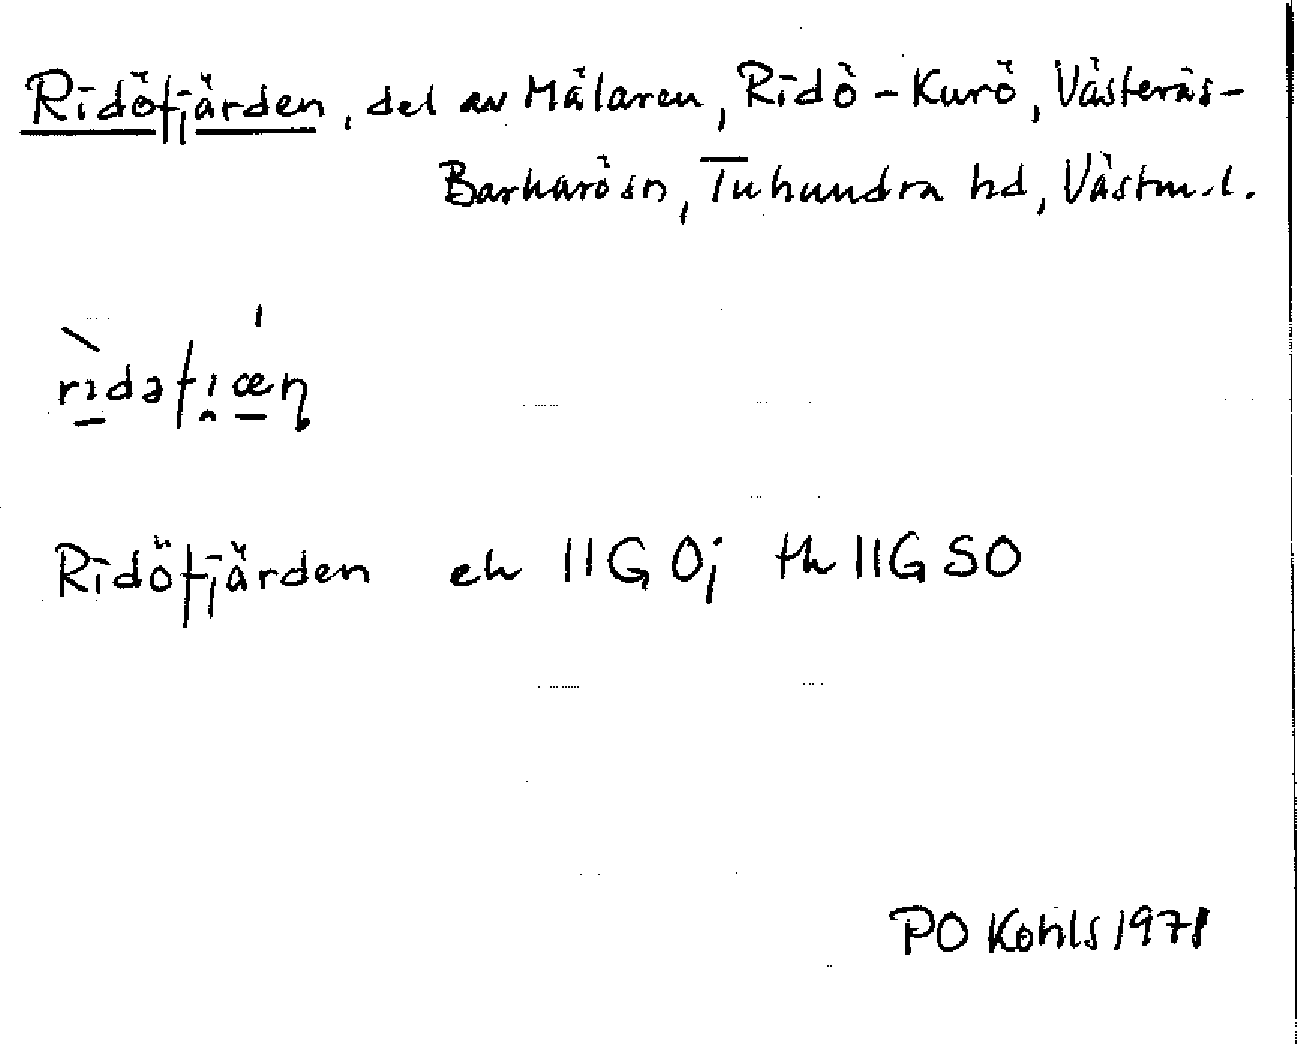 Ridöfjärden, del av Mälaren, Ridö-Kurö, Västerås-
Barkarö sn, Tuhundra hd, Västm. l.
rìdəfi̯æ̲ɳ
Ridöfjärden ek 11G 0j th 11G SO
PO Kohls 1971